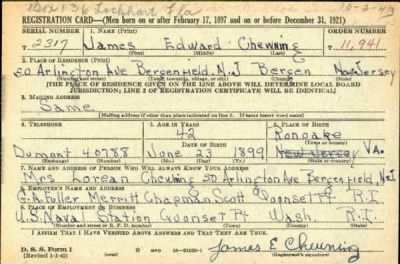 Box 136 Lockhart, Fla 10-2-43
REGISTRATION CARD—(Men born on or after February 17, 1897 and on or before December 31, 1921)
SERIAL NUMBER 1. NAME (Print) ORDER NUMBER
T 2317 James Edward Chewning 11,941
(First) (Middle) (Last)
2. PLACE OF RESIDENCE (Print)
50 Arlington Ave Bergenfield, N.J Bergen New Jersey
(Number and street) (Town, township, village, or city) (County) (State)
[THE PLACE OF RESIDENCE GIVEN ON THE LINE ABOVE WILL DETERMINE LOCAL BOARD
JURISDICTION; LINE 2 OF REGISTRATION CERTIFICATE WILL BE IDENTICAL]
3. MAILING ADDRESS
Same
[Mailing address if other than place indicated on line 2. If same insert word same]
4. TELEPHONE 5. AGE IN YEARS 6. PLACE OF BIRTH
42 Ronoake
DATE OF BIRTH (Town or county)
Dumont 40788 June 23 1899 New Jersey VA.
(Exchange) (Number) (Mo.) (Day) (Yr.) (State or country)
7. NAME AND ADDRESS OF PERSON WHO WILL ALWAYS KNOW YOUR ADDRESS
Mrs Lorean Chewning 50 Arlington Ave Bergenfield, N.J
8. EMPLOYER'S NAME AND ADDRESS
G.A. Fuller Merritt Chapman Scott Quonset Pt R.I.
9. PLACE OF EMPLOYMENT OR BUSINESS
U.S. Naval Station Quonset Pt Wash. R.I.
(Number and street or R. F. D. number) (Town) (County) (State)
I AFFIRM THAT I HAVE VERIFIED ABOVE ANSWERS AND THAT THEY ARE TRUE.
D. S. S. Form 1
(Revised 1-1-42) James E Chewning